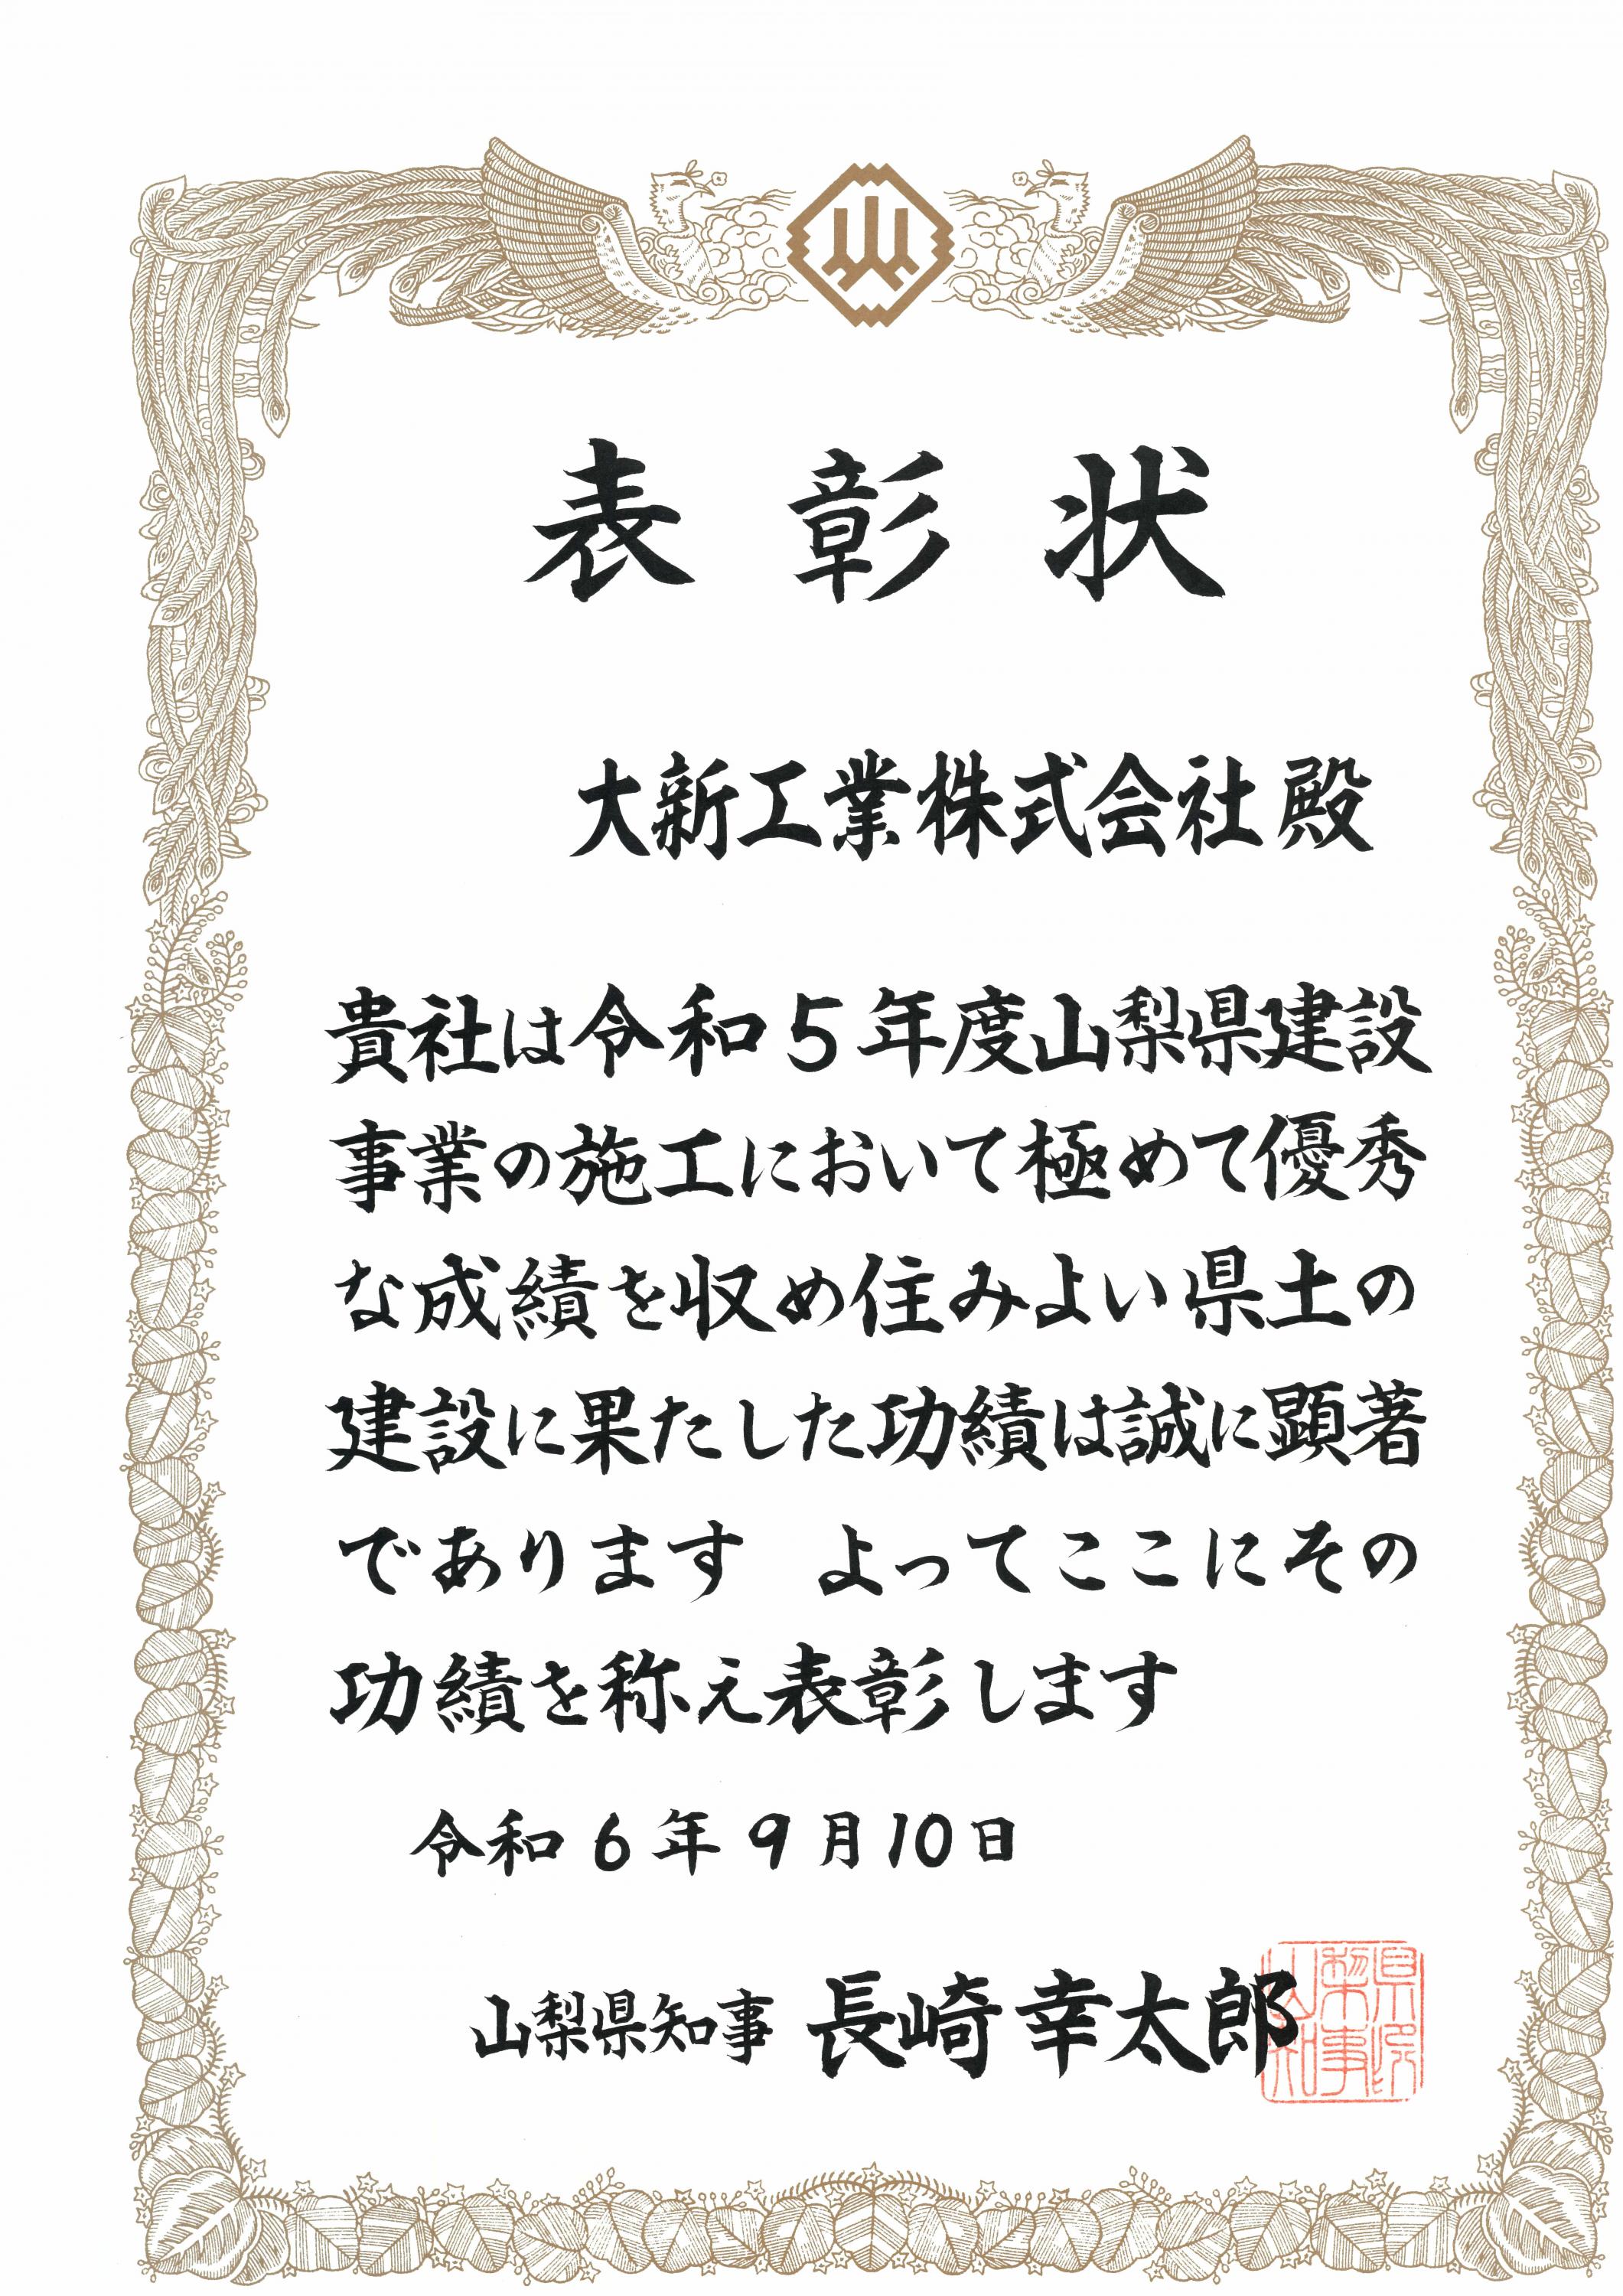 表彰状
大新工業株式会社殿
貴社は令和5年度山梨県建設
事業の施工において極めて優秀
な成績を収め住みよい県土の
建設に果たした功績は誠に顕著
であります　よってここにその
功績を称え表彰します
令和6年9月10日
山梨県知事 長崎幸太郎